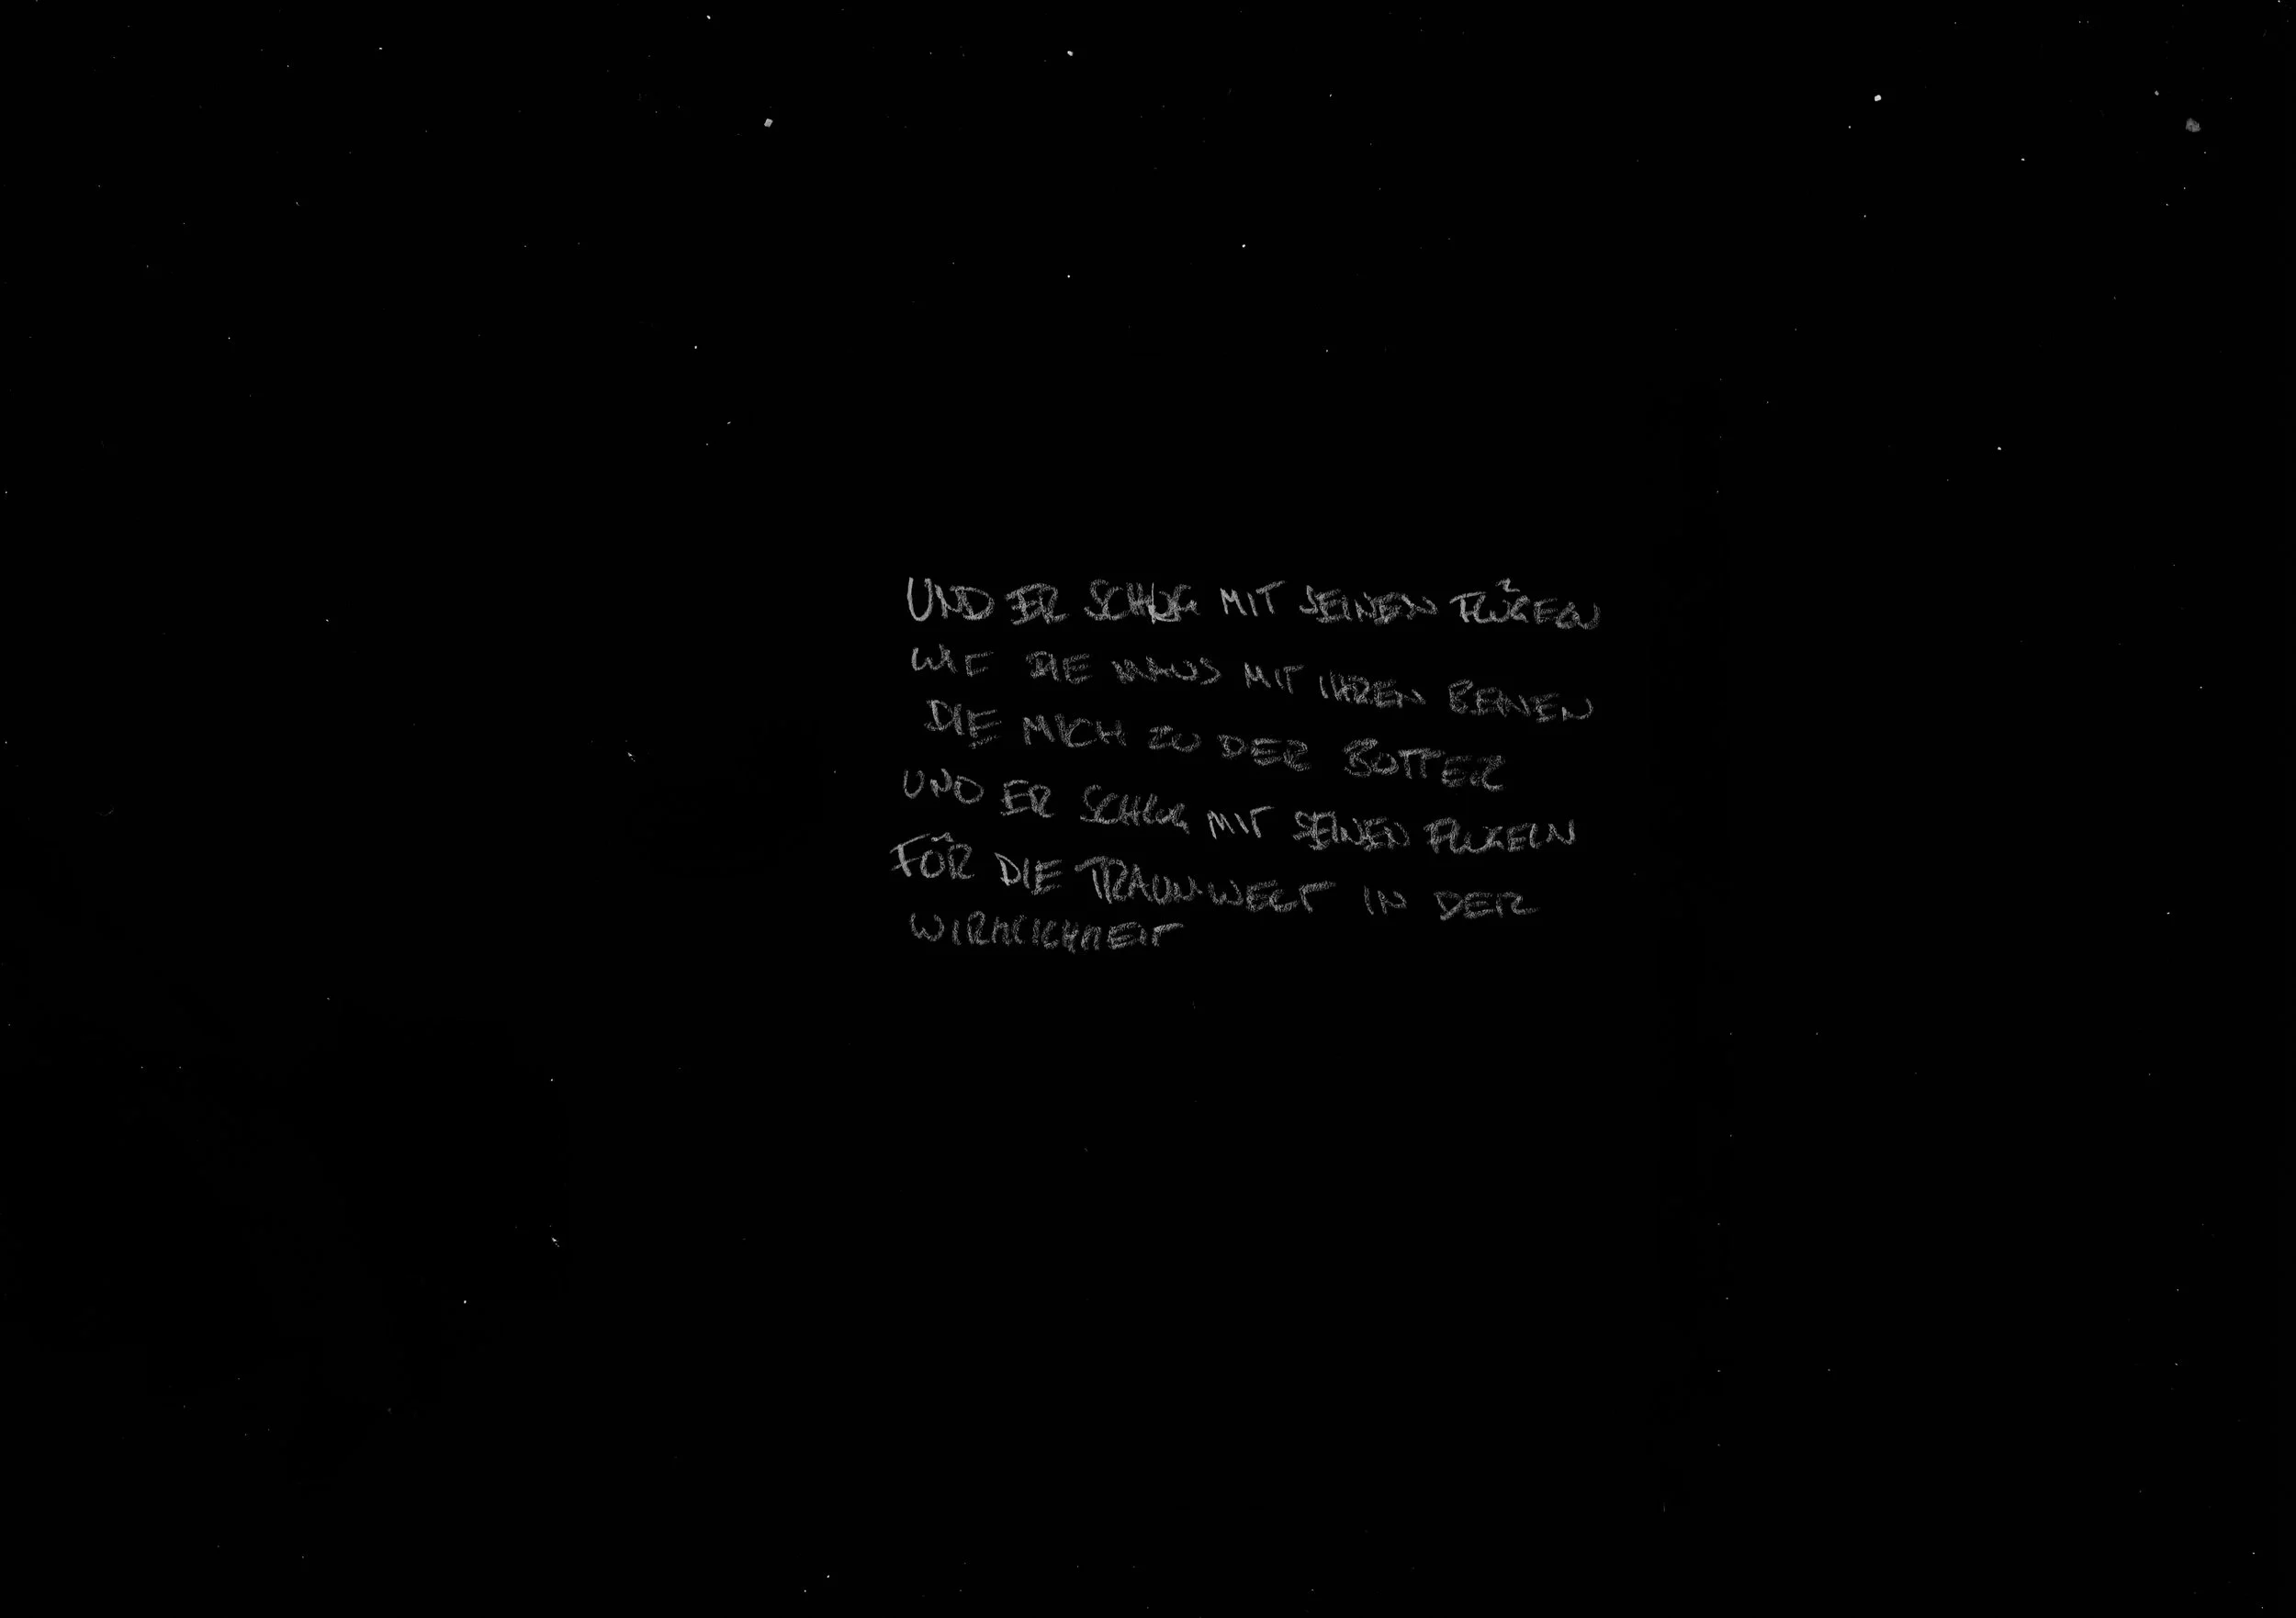 UND ER SCHLUG MIT SEINEN FLÜGELN
WIE DIE MAUS MIT IHREN BEINEN
DIE MICH ZU DER BUTTER
UND ER SCHLUG MIT SEINEN FLUGELN
FÜR DIE TRAUMWELT IN DER
WIRKLICHKEIT